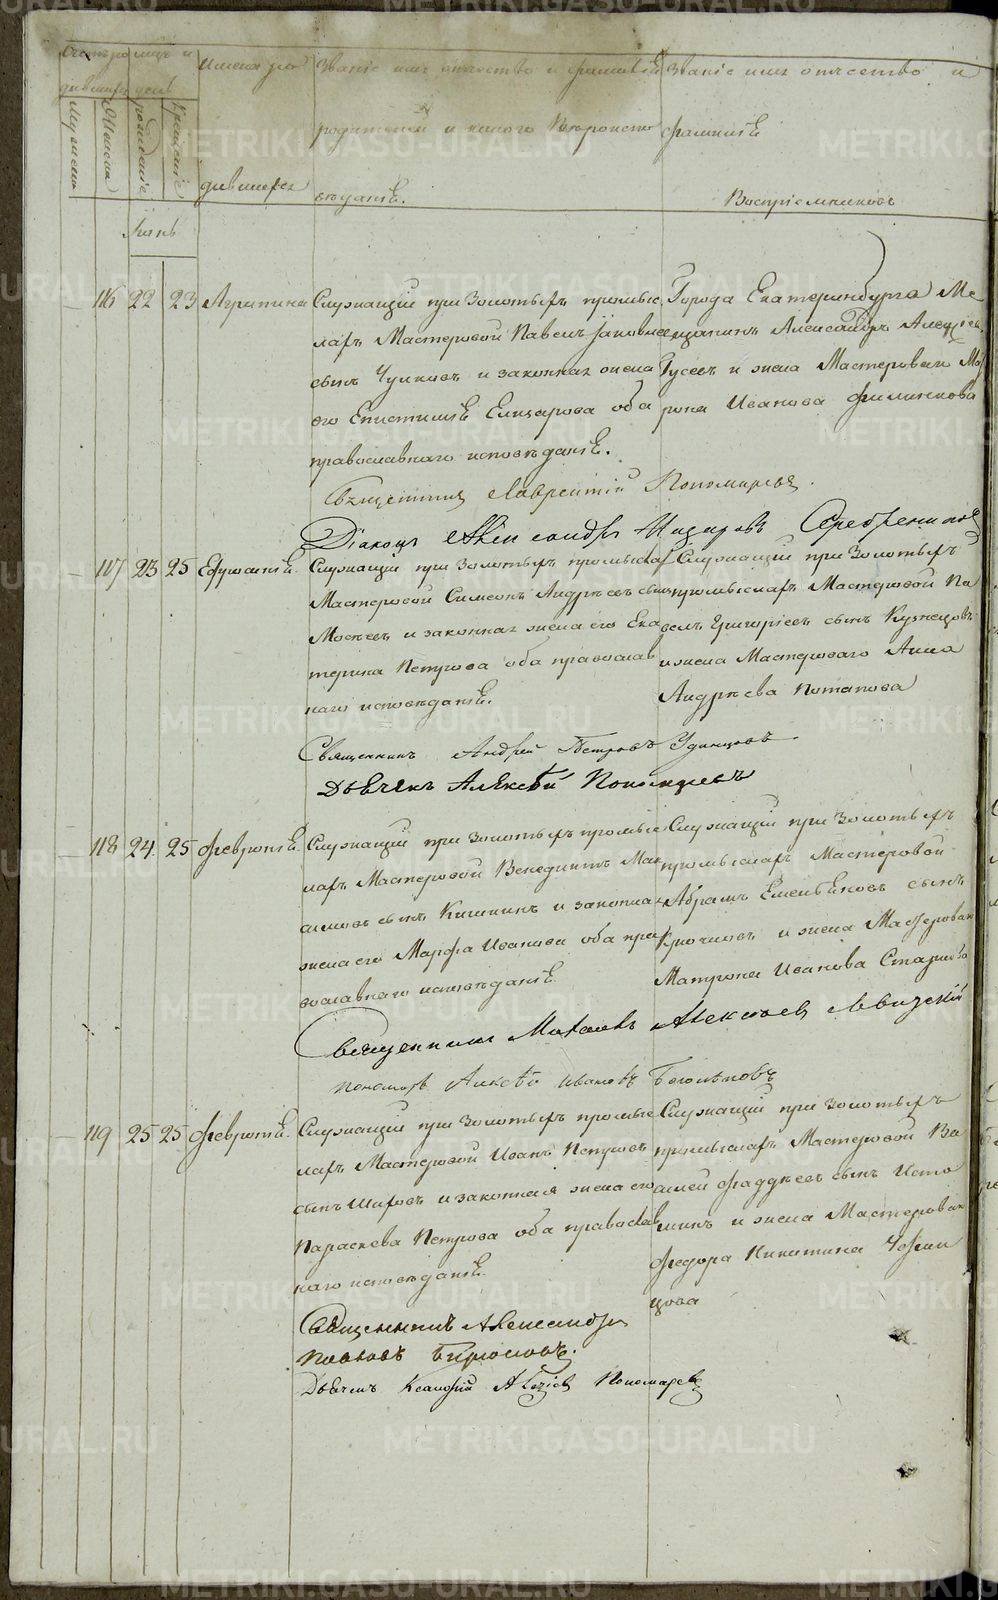 Счетъ родив
шихся
Мѣсяцъ и день
Мужеска
Женска
рожденiе
крещенiе
Имена ро
дившихся
Званiе имя отчество и фамилiя
родителей и какого вѣроиспо
вѣданiя.
Званiе имя отчество и
фамилiя
Воспрiемниковъ
Iюнь
116 22 23 Агрипина
Служащiй при Золотыхъ промыс
лахъ Мастеровой Павелъ Яковлевъ
сынъ Чулковъ и законная жена
его Епистимiя Елизарова оба
православнаго исповѣданiя.
Города Екатеринбурга Ме
щанинъ Александръ Алексѣевъ
Гусевъ и жена Мастероваго Мат
рона Иванова Филинкова
Священникъ Лаврентiй Пономаревъ.
Дiаконъ Александръ Серебренников
117 23 25 Ефросинiя
Служащiй при Золотыхъ промыслах
Мастеровой Симеонъ Андреевъ сынъ
Мосеевъ и законная жена его Ека
терина Петрова оба православ
наго исповѣданiя.
Служащiй при Золотыхъ
промыслахъ Мастеровой Па
велъ Григорiевъ сынъ Кузнецовъ
и жена Мастероваго Анна
Андреева Потапова
Священникъ Андрей Петровъ Удинцовъ
Дьячекъ Алексѣй Пономаревъ
118 24 25 Феврония
Служащiй при Золотыхъ промыс
лахъ Мастеровой Венедиктъ Мак
симовъ сынъ Кишкинъ и законная
жена его Марфа Иванова оба пра
вославнаго исповѣданiя
Служащiй при Золотыхъ
промыслахъ Мастеровой
Абрамъ Емельяновъ сынъ
Крючковъ и жена Мастероваго
Матрона Иванова Старкова
Священникъ Михаилъ Алексѣевъ Левицкiй
пономарь Алексѣй Ивановъ Боголѣповъ
119 25 25 Феврония
Служащiй при Золотыхъ промыс
лахъ Мастеровой Иванъ Петровъ
сынъ Шировъ и законная жена его
Параскева Петрова оба православ
наго исповѣданiя
Служащiй при Золотыхъ
промыслахъ Мастеровой Ва
силей Фаддеевъ сынъ Исто
минъ и жена Мастероваго
Федора Никитина
цова
Священникъ Александръ
Павловъ Бирюковъ.
Дьячекъ Ксенофонт Пономаревъ
METRIKI.GASO-URAL.RU